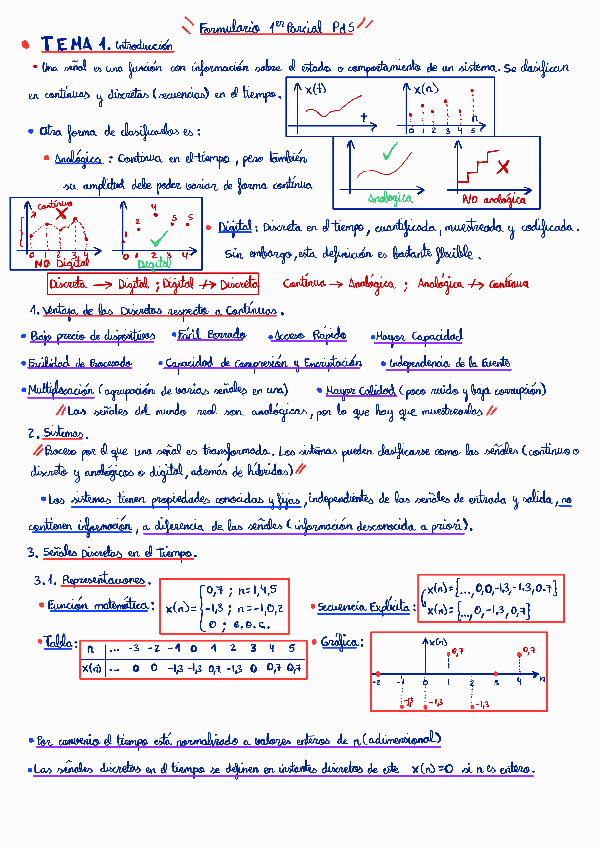 Formulario 1er Parcial PdS
TEMA 1. Introducción
• Una señal es una función con información sobre el estado o comportamiento de un sistema. Se clasifican
en continuas y discretas (secuencias) en el tiempo.
x(t)
t
x(n)
0 1 2 3 4 5 n
• Otra forma de clasificarlos es:
• Analógica: Continua en el tiempo, pero también
su amplitud debe poder variar de forma continua
Analógica
NO analógica
Continuo
0 1 2 3 4
NO Digital
1 2 4 5 5
0 1 2 3 4
Digital
• Digital: Discreta en el tiempo, cuantificada, muestreada y codificada.
Sin embargo, esta definición es bastante flexible.
Discreta → Digital ; Digital ↛ Discreta
Continua → Analógica ; Analógica ↛ Continua
1. Ventaja de las Discretas respecto a Continuas.
• Bajo precio de dispositivos • Fácil Borrado • Acceso Rápido • Mayor Capacidad
• Facilidad de Procesado • Capacidad de Compresión y Encriptación • Independencia de la Fuente
• Multiplexación (agrupación de varias señales en una) • Mayor Calidad (poco ruido y baja corrupción)
// Las señales del mundo real son analógicas, por lo que hay que muestrearlas //
2. Sistemas.
// Proceso por el que una señal es transformada. Los sistemas pueden clasificarse como las señales (continuo o
discreto y analógicos o digital, además de híbridas) //
• Los sistemas tienen propiedades conocidas y fijas, independientes de las señales de entrada y salida, no
contienen información, a diferencia de las señales (información desconocida a priori).
3. Señales Discretas en el Tiempo.
3.1. Representaciones.
• Función matemática:
x(n) = { 0,7 ; n=1,4,5
-1,3 ; n=-1,0,2
0 ; e.o.c.
• Secuencia Explícita:
x(n)={...,0,0,-1,3,-1,3,0.7}
x(n)={...,0,-1,3,0,7}
• Tabla:
n ... -3 -2 -1 0 1 2 3 4 5
x(n) ... 0 0 -1,3 -1,3 0,7 -1,3 0 0,7 0,7
• Gráfica:
x(n)
0,7 0,7
-2 -1 0 1 2 3 4 n
-1,3 -1,3 -1,3
• Por convenio el tiempo está normalizado a valores enteros de n (adimensional)
• Las señales discretas en el tiempo se definen en instantes discretos de este x(n)=0 si n es entero.